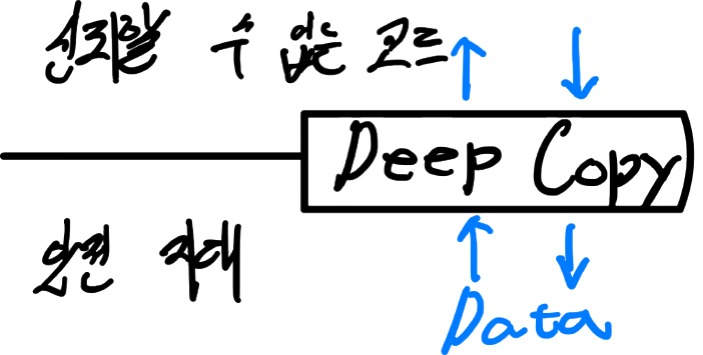 신뢰할 수 없는 코드
Deep Copy
안전 지대
Data